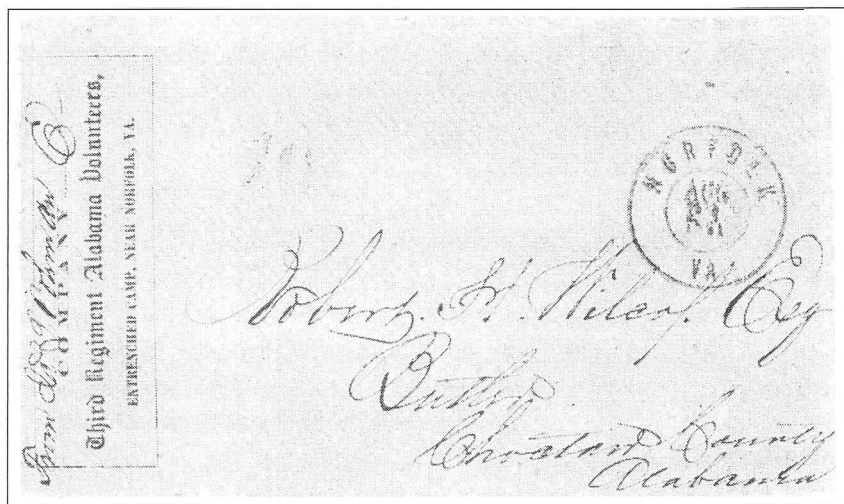 COMPANY
Third Regiment Alabama Volunteers,
ENTRENCHED CAMP, NEAR NORFOLK, VA.
NORFOLK
VA.
Robert. H. Wilcox. Esq
Butler
Choctaw County
Alabama